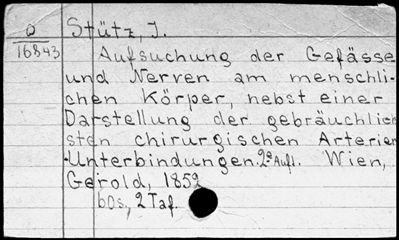 O Stütz, J.
16843 Aufsuchung der Gefässe
und Nerven am menschli-
chen Körper, nebst einer
Darstellung der gebräuchlich
sten chirurgischen Arterien
-Unterbindungen. 2e Aufl. Wien,
Gerold, 1852
60s., 2 Taf.